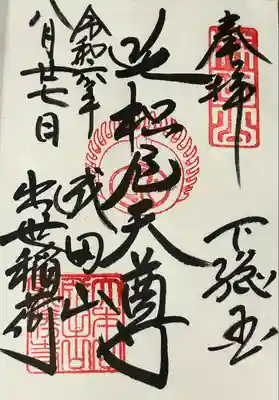 奉拝
下総国
枳尼天尊
成田山
出世稲荷
令和六年
八月廿七日